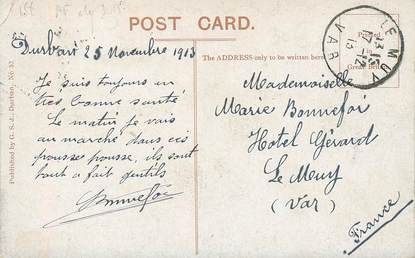 POST CARD.
Durban 25 Novembre 1913
The ADDRESS only to be written here.
Je suis toujours en
très bonne santé
Le matin je vais
au marché dans ces
pousse pousse, ils sont
tout à fait gentils
Bonnefoi
Mademoiselle
Marie Bonnefoi
Hotel Gérard
Le Muy
(Var)
France
LE MUY
VAR
Published by G. S. J., Durban, No. 37